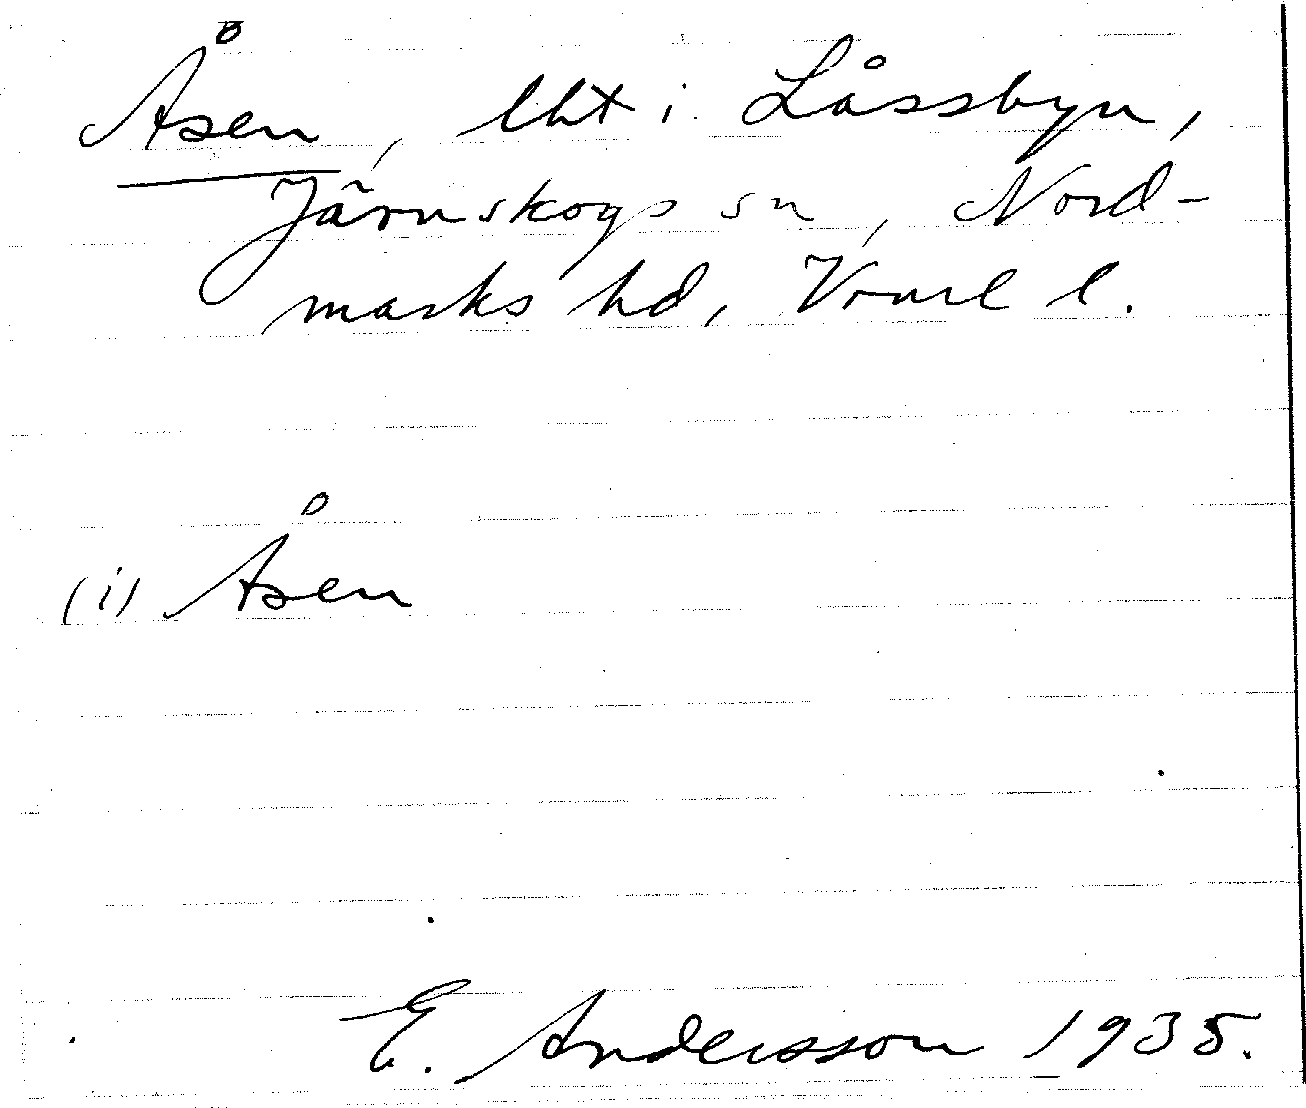 Åsen, lht i Låssbyn,
Järnskogs sn, Nord-
marks hd, Vrml l.
(i) Åsen
E. Andersson 1935.